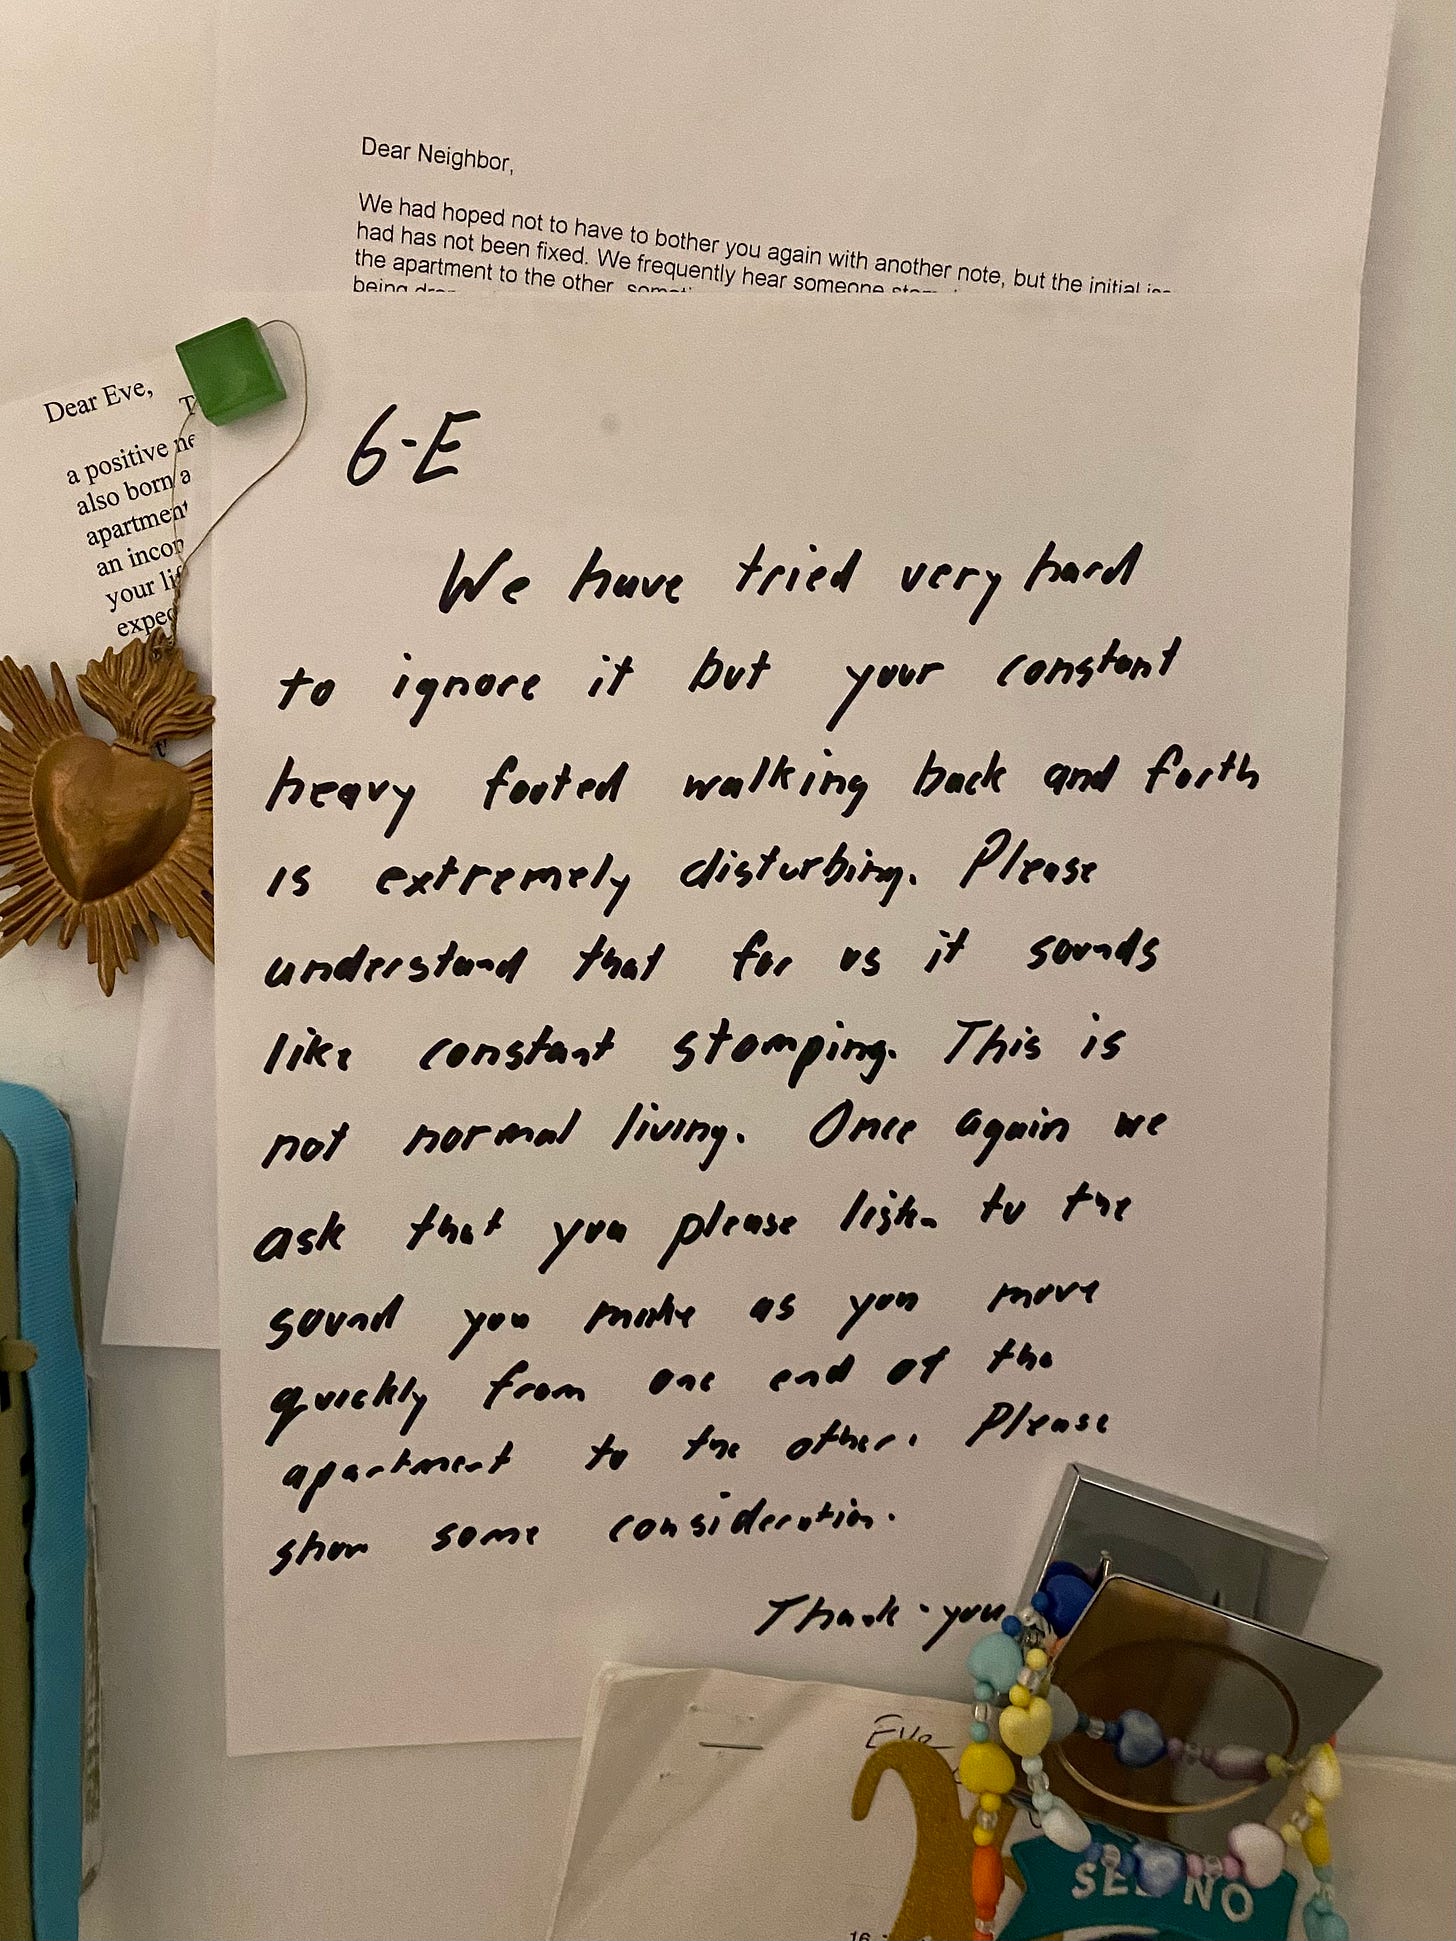 Dear Neighbor,
We had hoped not to have to bother you again with another note, but the initial
had has not been fixed. We frequently hear someone
the apartment to the other,
being
Dear Eve,
a positive
also born a
apartment
an
your
6-E
We have tried very hard
to ignore it but your constant
heavy footed walking back and forth
is extremely disturbing. Please
understand that for us it sounds
like constant stomping. This is
not normal living. Once again we
ask that you please listen to the
sound you make as you move
quickly from one end of the
apartment to the other. Please
show some consideration.
Thank-you
Eve
SEE NO
16